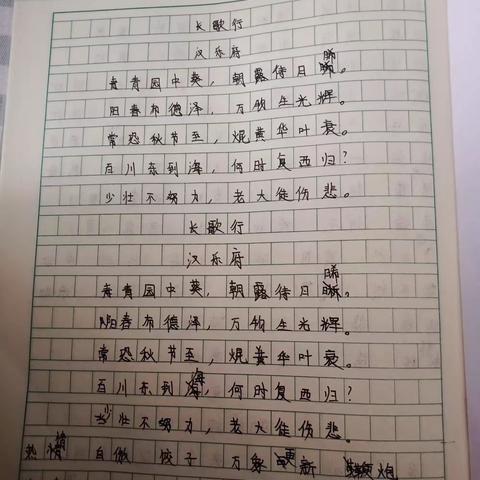 长歌行
汉乐府
青青园中葵，朝露待日晞。
阳春布德泽，万物生光辉。
常恐秋节至，焜黄华叶衰。
百川东到海，何时复西归？
少壮不努力，老大徒伤悲。
长歌行
汉乐府
青青园中葵，朝露待日晞。
阳春布德泽，万物生光辉。
常恐秋节至，焜黄华叶衰。
百川东到海，何时复西归？
少壮不努力，老大徒伤悲。
热情 自傲 饺子 万象更新 鞭炮